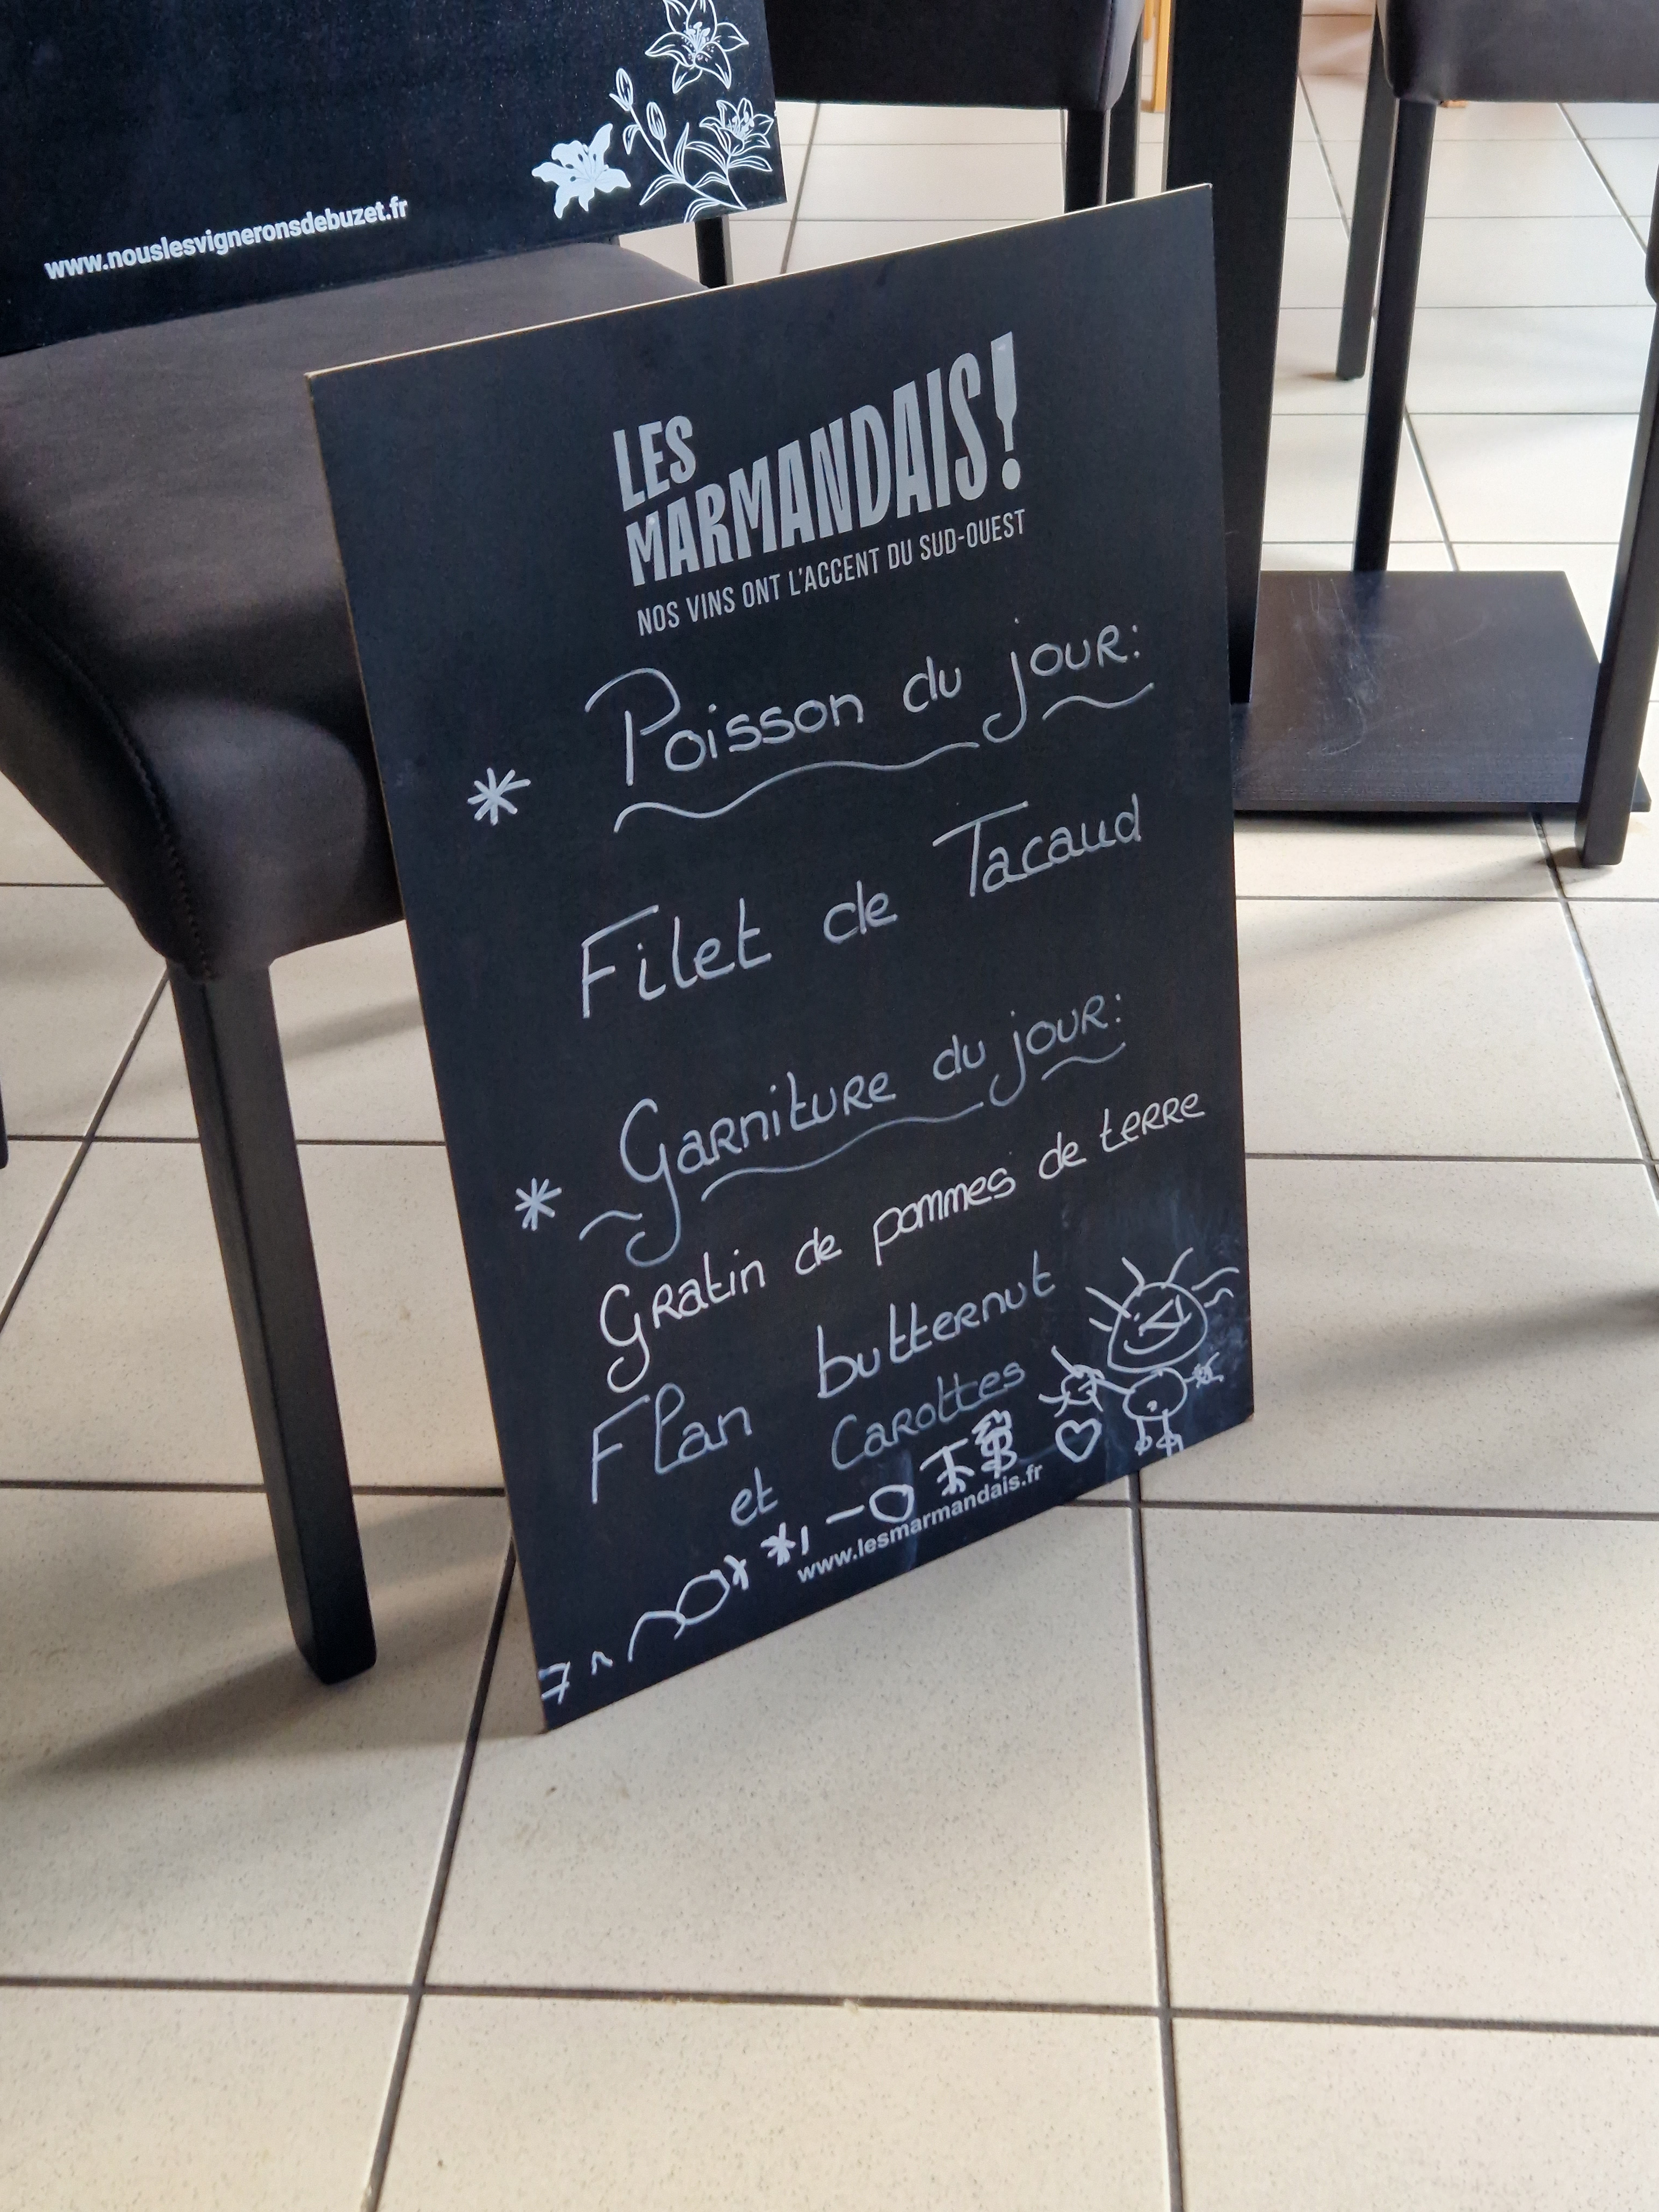 www.nouslesvigneronsdebuzet.fr
LES
MARMANDAIS!
NOS VINS ONT L'ACCENT DU SUD-OUEST
* Poisson du jour:
Filet de Tacaud
* Garniture du jour:
Gratin de pommes de terre
Flan butternut
et Carottes
www.lesmarmandais.fr